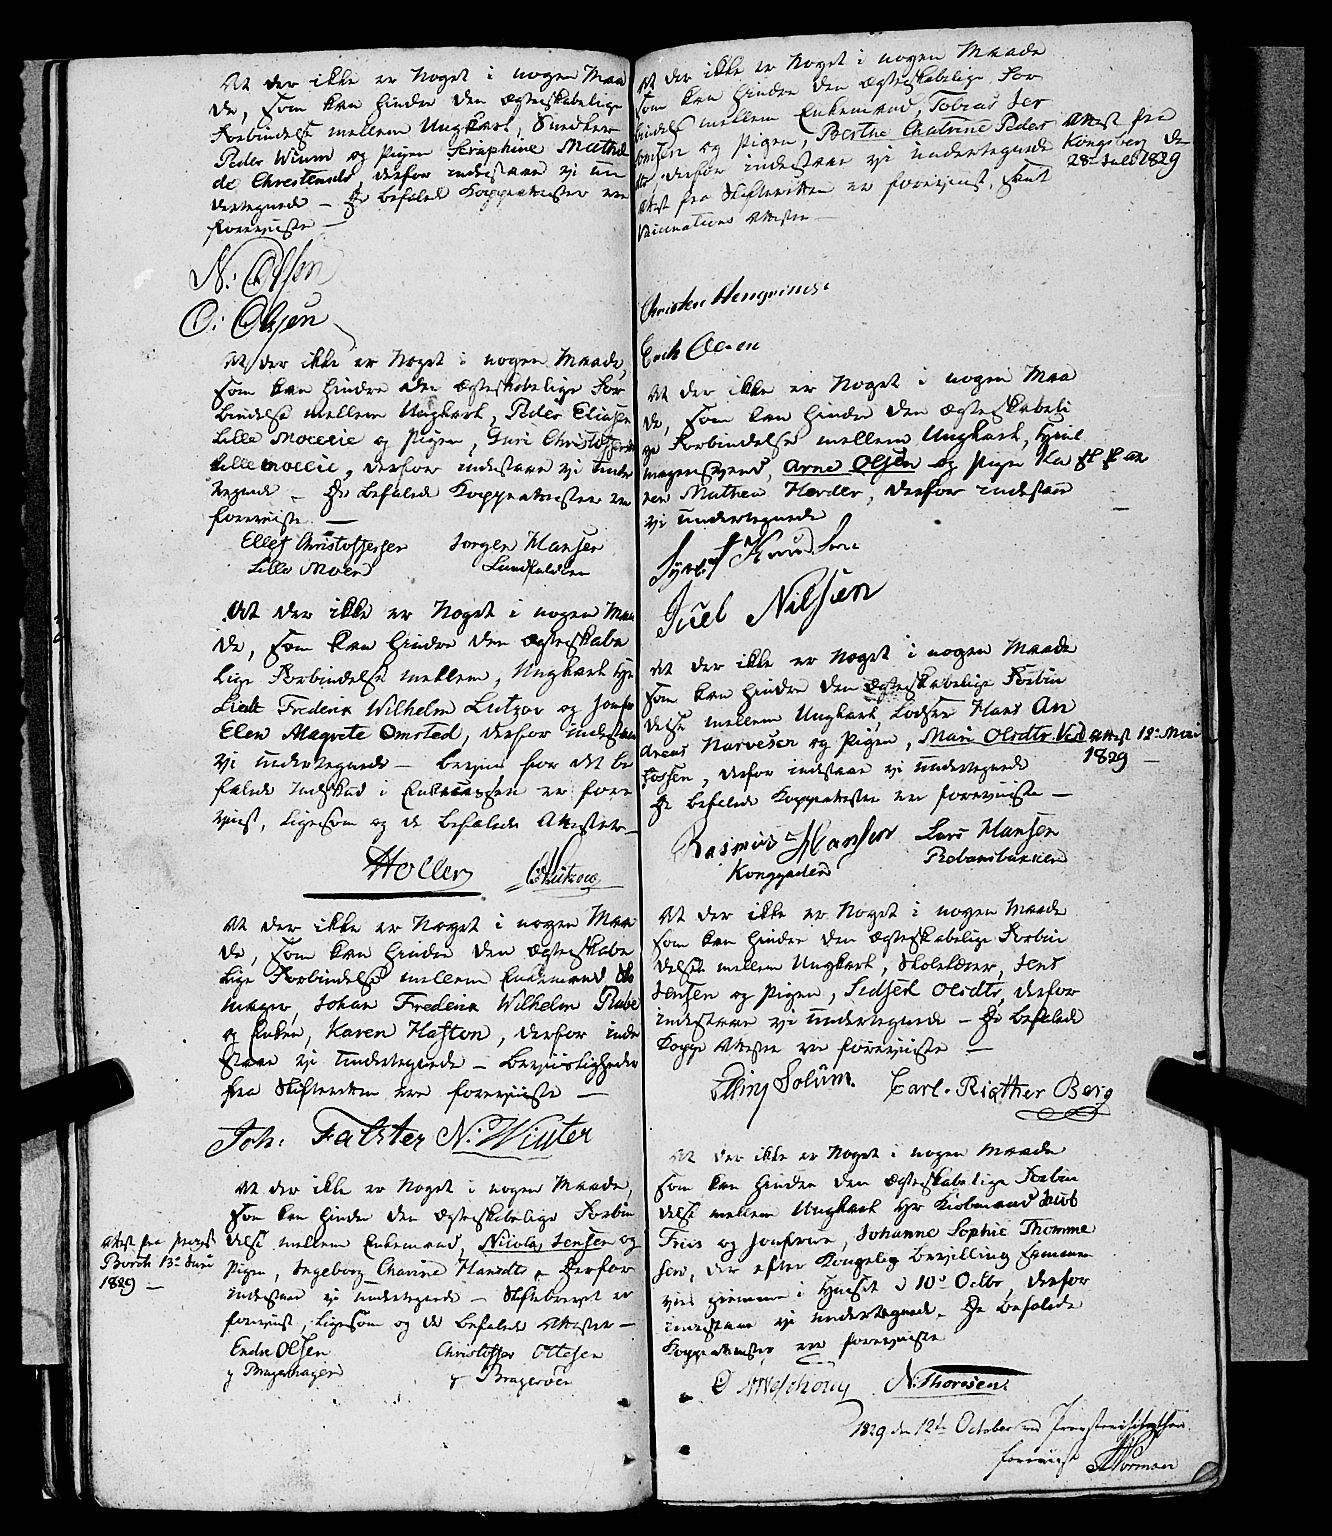 At der ikke er Noget i nogen Maa
de, som kan hindre den ægteskabelige
Forbindelse mellem Ungkarl, Snedker
Peder Winm og Pigen Seraphine Mathil
de Christensdr derfor indestaae vi un
dertegnede – De befalede Koppeattester ere
foreviiste –
N: Olsen
O: Olsen
At der ikke er Noget i nogen Maade,
som kan hindre den ægteskabelige For
bindelse mellem Ungkarl, Peder Eliasen
Lille og Pigen, Guri Christophersdr
Lille derfor indestaae vi under
tegnede – De befalede Koppeattester ere
foreviiste. –
Ellef Christophersen Jørgen Hansen
Lille Moen
At der ikke er Noget i nogen Maa
de, som kan hindre den ægteskabe
lige Forbindelse mellem, Ungkarl Hr
Lieut Frederik Wilhelm Lutzov og Jomfru
Elen Magrete Omsted, derfor indestaae
vi undertegnede – Beviis for det be
falede Indskud i Enkecassen er fore
viist, ligesom og de befalede Attester –
Holler Lützow
At der ikke er Noget i nogen Maa
de, som kan hindre den ægteskabe
lige Forbindelse mellem Enkemand
mager, Johan Frederik Wilhelm Rabe
og Enken, Karen Hafton, derfor inde
staae vi undertegnede – Beviisligheder
fra Skifteretten ere foreviiste –
Joh. Falster N. Winter
At der ikke er Noget i nogen Maade,
som kan hindre den ægteskabelige Forbin
delse mellem Enkemand, Nicolay Jensen og
Pigen, Ingeborg Chatrine Hansdtr, derfor
indestaae vi undertegnede – Skiftebrevet er
foreviist, ligesom og de befalede Attester –
Attest fra
13de Juni
1829 –
Endre Olsen Christopher Ottesen
p Bragernæs p Bragerøen
At der ikke er Noget i nogen Maade
som kan hindre den ægteskabelige For
bindelse mellem Enkemand, Tobias Ter
og Pigen, Berthe Chatrine Peders
dtr, derfor indestaae vi undertegnede
Attest fra Skifteretten er foreviist, samt
Vaccinations Attester –
Attest fra
Kongsberg de
28de Juli 1829
Christen
Erich Olsen
At der ikke er Noget i nogen Maa
de, som kan hindre den ægteskabeli
ge Forbindelse mellem Ungkarl,
magersvend, Arne Olsen og Pigen Ka
ren Mathea Herder, derfor indestaae
vi undertegnede
Syvert Knudsen
Juel Nilsen
At der ikke er Noget i nogen Maade
som kan hindre den ægteskabelige Forbin
delse mellem Ungkarl, Lodser Hans An
dreas Narvesen og Pigen, Mari Olsdtr. Ved
fossen, derfor indestaae vi undertegnede
De befalede Koppeattester ere foreviiste –
Attest 12te Mai
1829 –
Rasmus Hansen Lars Hansen
At der ikke er Noget i nogen Maade
som kan hindre den ægteskabelige Forbin
delse mellem Ungkarl, Skolelærer, Jens
Jensen og Pigen, Sidsel Olsdtr, derfor
indestaae vi undertegnede – De befalede
Koppe Attester ere foreviiste –
Solum. Carl. Rigther Berg
At der ikke er Noget i nogen Maade
som kan hindre den ægteskabelige Forbin
delse mellem Ungkarl Hr Kiøbmand Jacob
Friis og Jomfrue, Johanne Sophie Thomme
sen, der efter Kongelig Bevilling sammen
vies hiemme i Huuset d 10de Octbr, derfor
indestaae vi undertegnede. De befalede
Koppeattester ere foreviiste
N. Thoresen.
1829 den 12te October ved
foreviist